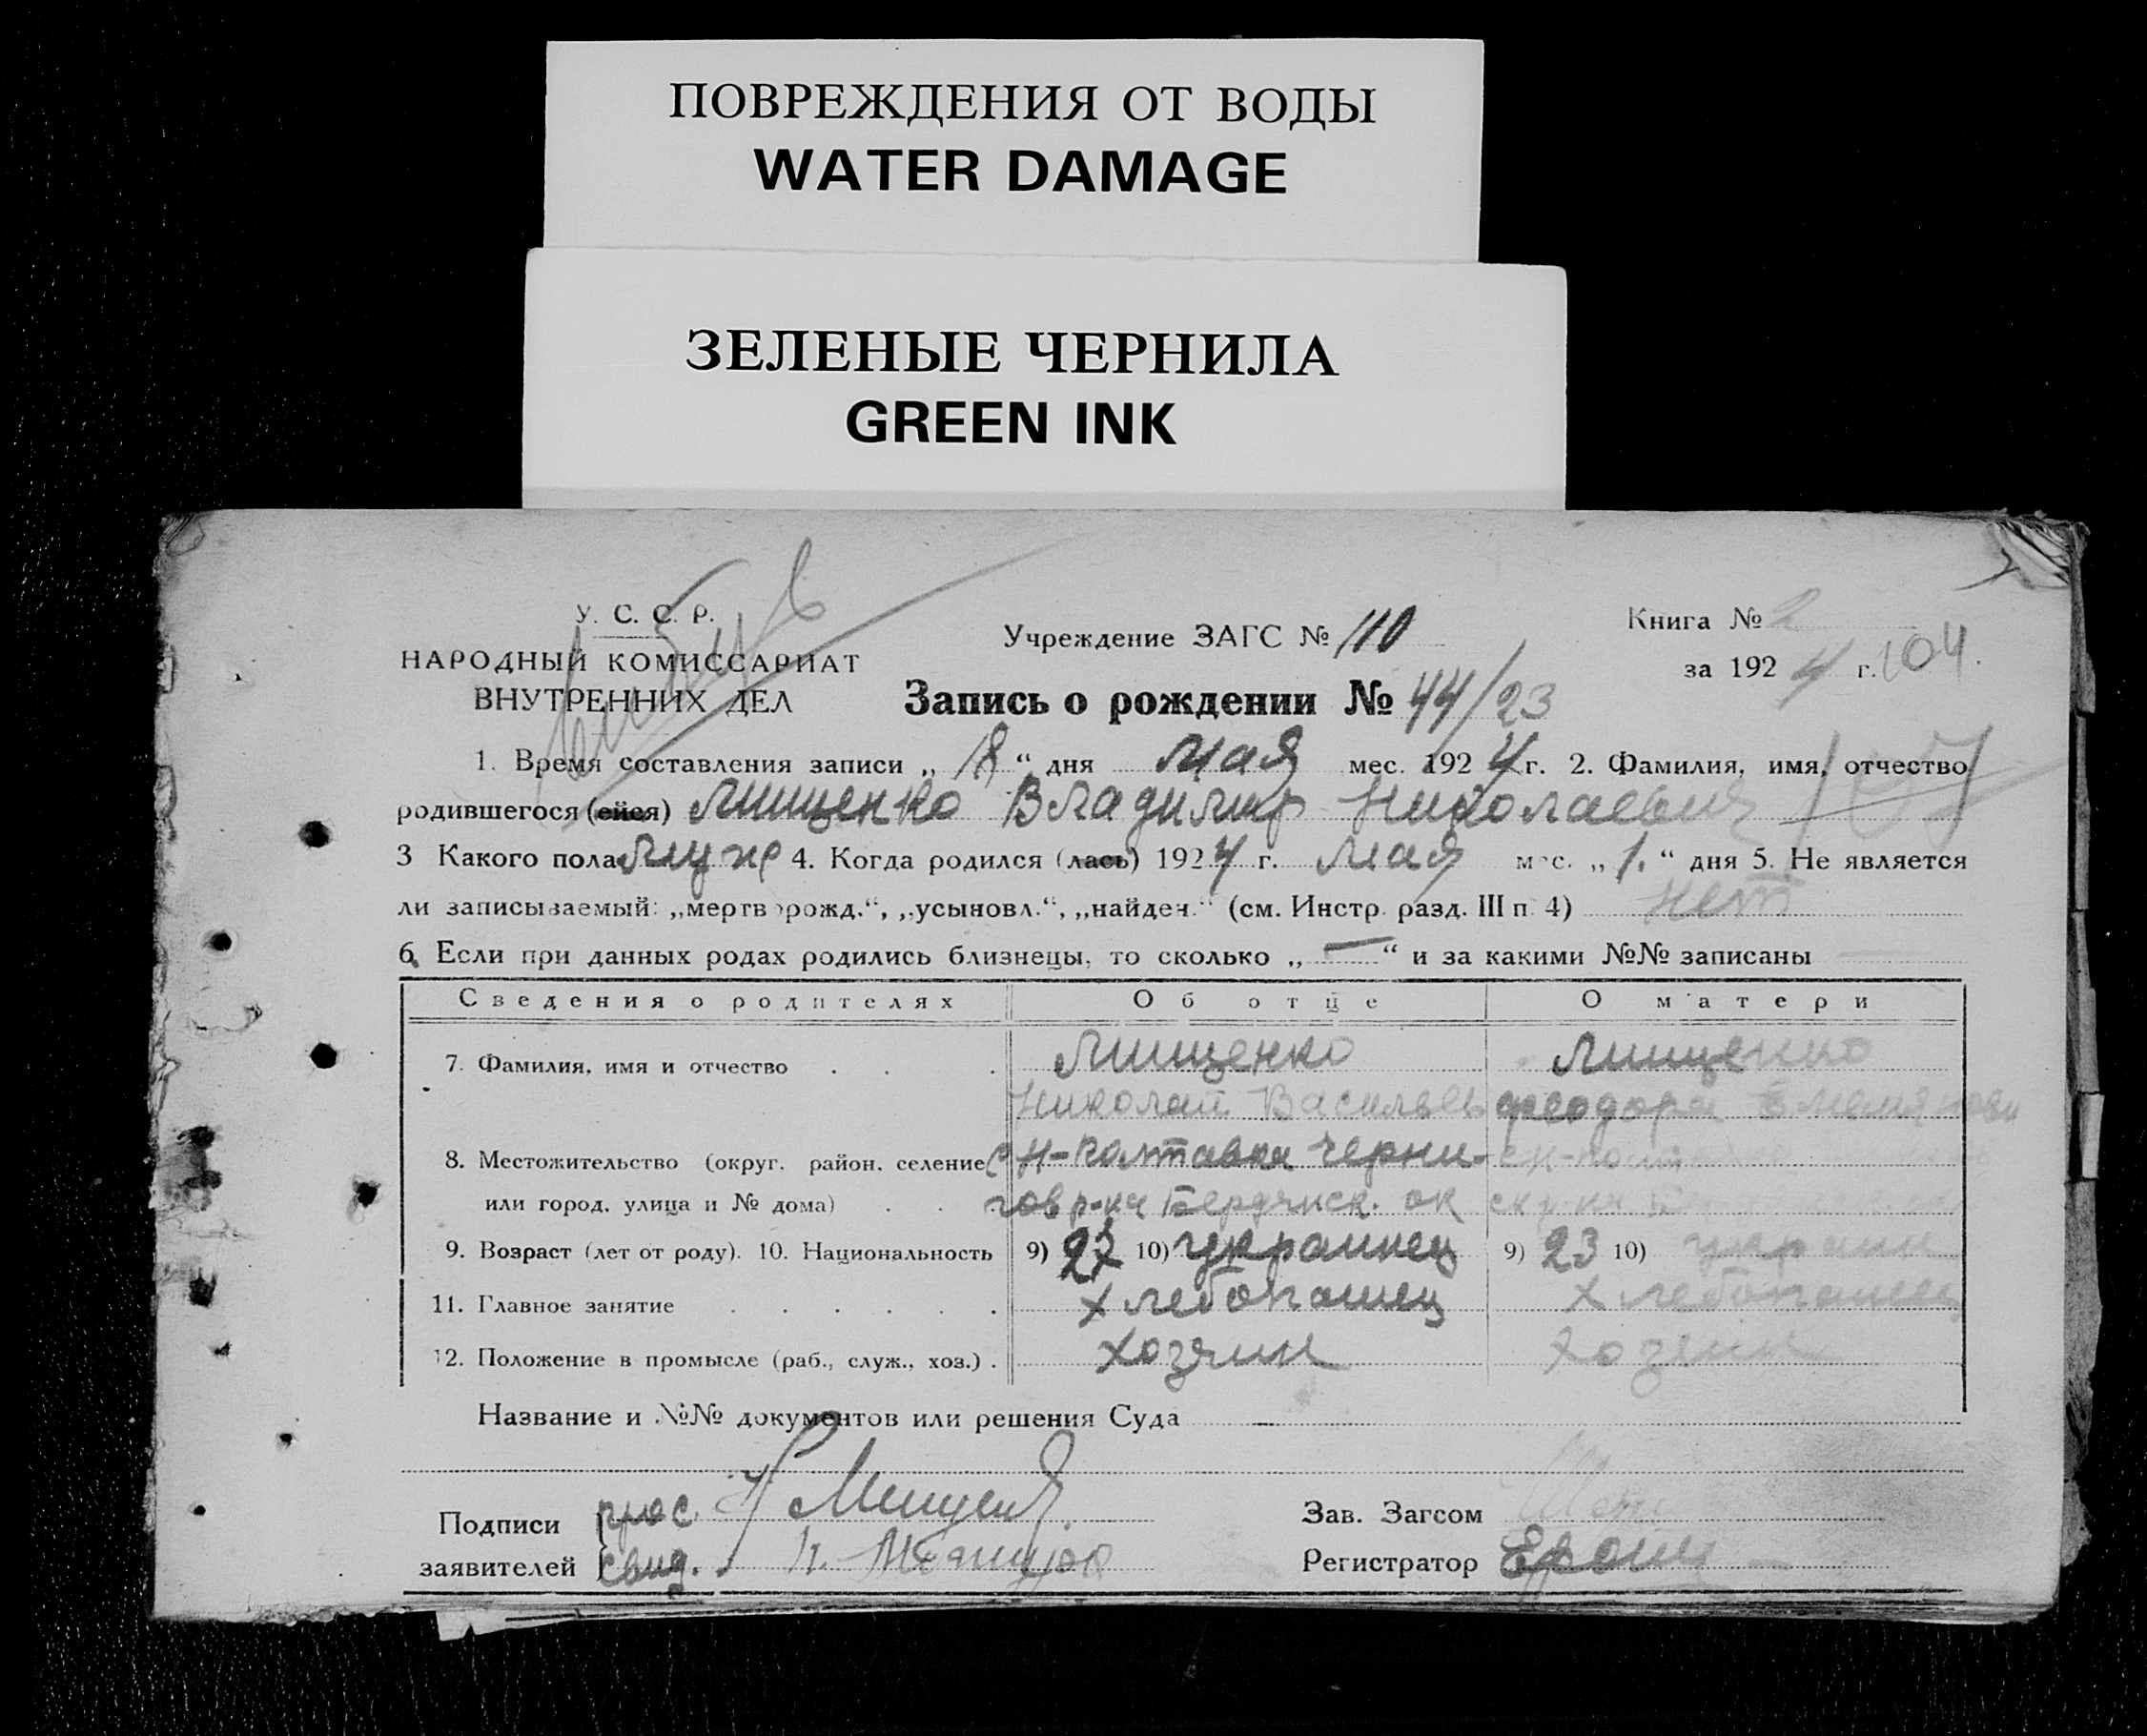 ПОВРЕЖДЕНИЯ ОТ ВОДЫ
WATER DAMAGE
ЗЕЛЕНЫЕ ЧЕРНИЛА
GREEN INK
У. С. С. Р.
НАРОДНЫЙ КОМИССАРИАТ
ВНУТРЕННИХ ДЕЛ
Учреждение ЗАГС № 110
Книга № 2
за 1924 г. 104.
Запись о рождении № 44/23
1. Время составления записи „18“ дня мая мес. 1924 г. 2. Фамилия, имя, отчество
родившегося (ейся) Мищенко Владимир Николаевич
3 Какого пола Муж 4. Когда родился (лась) 1924 г. мая мес. „1.“ дня 5. Не является
ли записываемый: „мертворожд.“, „усыновл.“, „найден.“ (см. Инстр. разд. III п. 4) нет
6. Если при данных родах родились близнецы, то сколько „—“ и за какими №№ записаны
Сведения о родителях Об отце О матери
7. Фамилия, имя и отчество Мищенко Мищенко
Николай Васильев Феодора
8. Местожительство (округ. район. селение с Н-Полтавка Черни-
или город. улица и № дома) гов р-на Бердянск. ок
9. Возраст (лет от роду). 10. Национальность 9) 10) украинец 9) 23 10) украин
11. Главное занятие хлебопашец хлебопашец
12. Положение в промысле (раб., служ., хоз.) хозяин хозяин
Название и №№ документов или решения Суда —
Подписи
заявителей свид.
Зав. Загсом
Регистратор